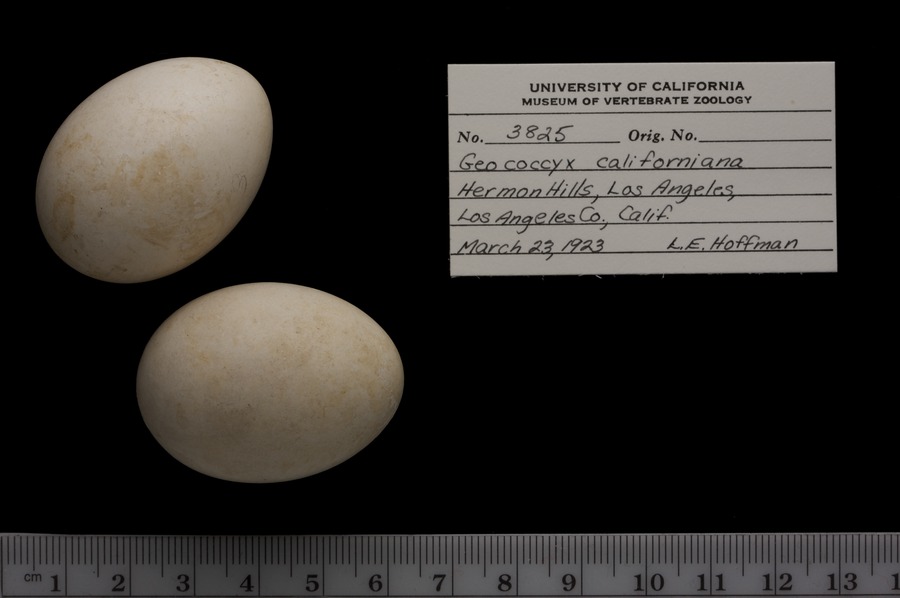 UNIVERSITY OF CALIFORNIA
MUSEUM OF VERTEBRATE ZOOLOGY
No. 3825 Orig. No.
Geococcyx californiana
Hermon Hills, Los Angeles,
Los Angeles Co., Calif.
March 23, 1923 L.E. Hoffman
cm 1 2 3 4 5 6 7 8 9 10 11 12 13 1